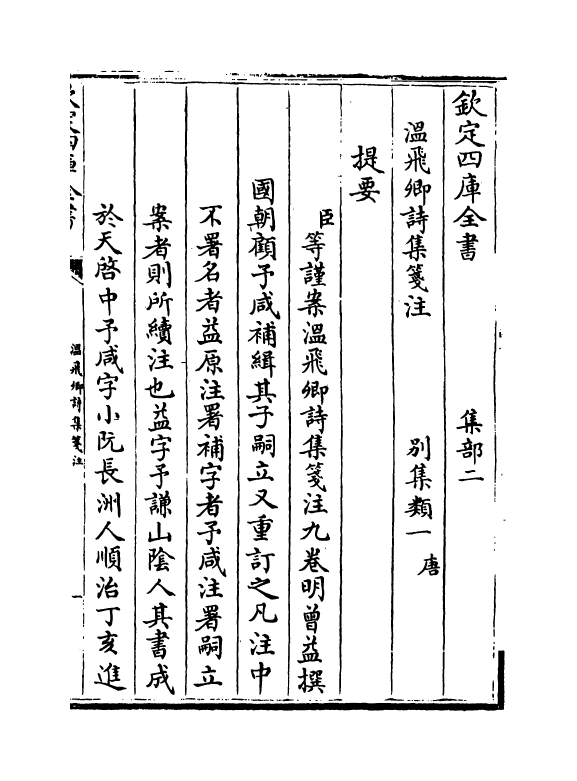 欽定四庫全書　集部二
溫飛卿詩集箋注　別集類一 唐
提要
臣等謹案溫飛卿詩集箋注九卷明曾益撰
國朝顧予咸補緝其子嗣立又重訂之凡注中
不署名者益原注署補字者予咸注署嗣立
案者則所續注也益字予謙山陰人其書成
於天啓中予咸字小阮長洲人順治丁亥進
欽定四庫全書
溫飛卿詩集箋注
一